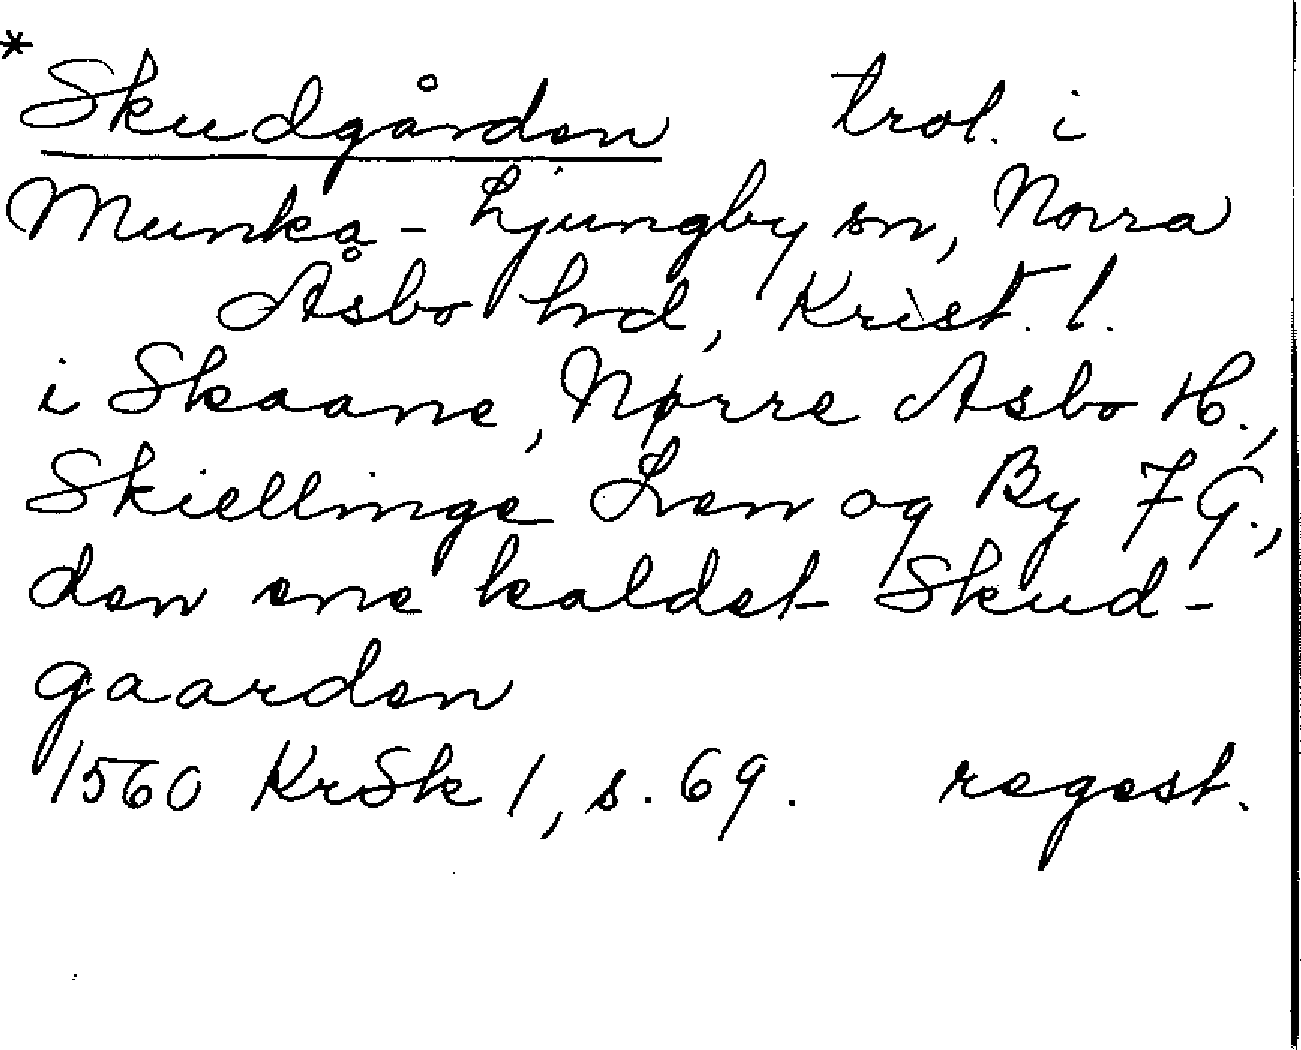 *
Skudgården trol. i
Munka-Ljungby sn, Norra
Åsbo hd, Krist. l.
i Skaane, Nørre Asbo H.,
Skiellinge Len og By 7 G.,
den ene kaldet Skud-
gaarden
1560 KrSk 1, s. 69. regest.